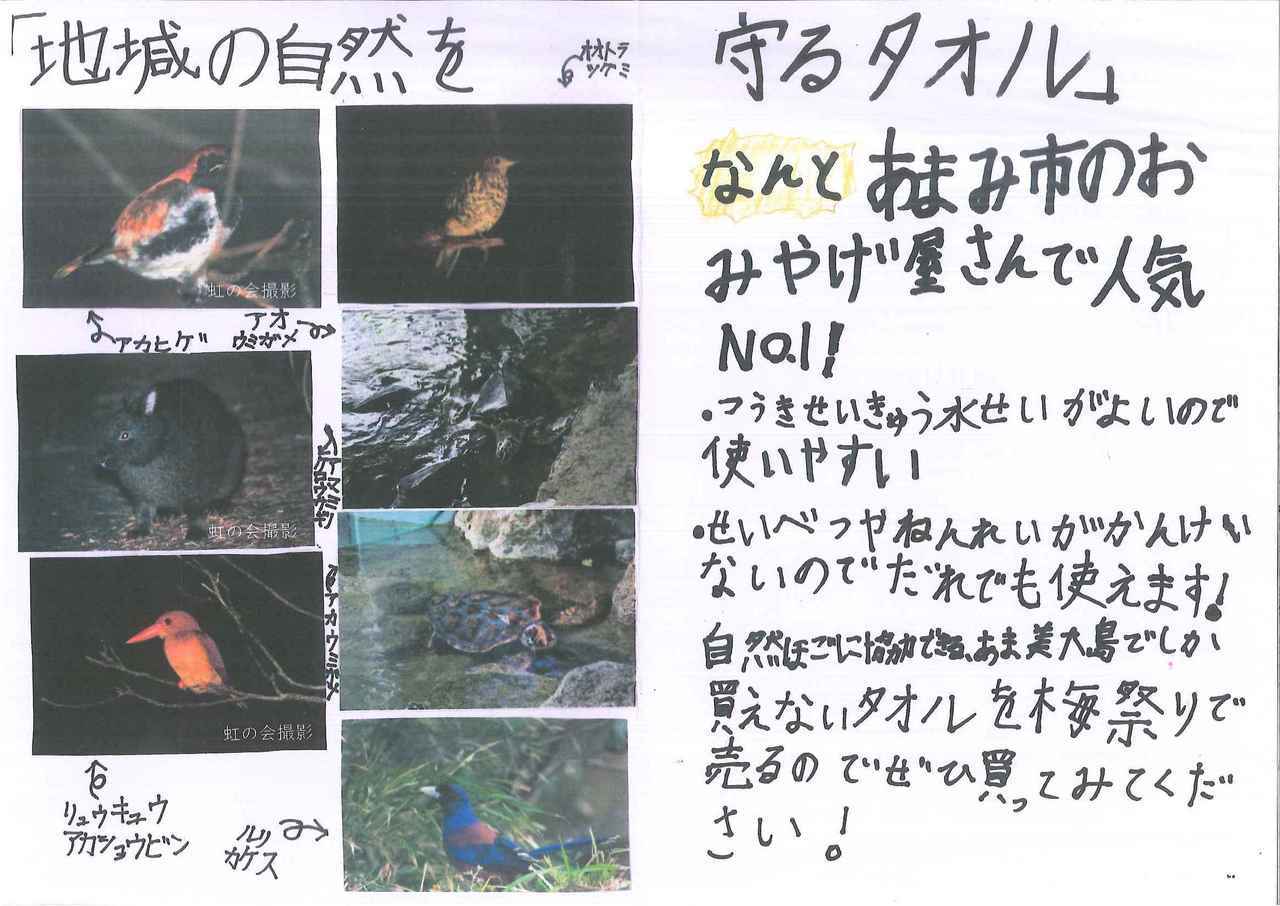 「地域の自然を 守るタオル」
オオトラ
ツグミ
虹の会撮影
アカヒゲ
アオ
ウミガメ
虹の会撮影
アマミノ
クロウサギ
アカウミガメ
虹の会撮影
リュウキュウ
アカショウビン
ルリ
カケス
なんと あまみ市のお
みやげ屋さんで人気
NO.1!
・つうきせいきゅう水せいがよいので
使いやすい
・せいべつやねんれいがかんけい
ないのでだれでも使えます!
自然ほごに協力できる、あま美大島でしか
買えないタオルを梅祭りで
売るのでぜひ買ってみてくだ
さい!